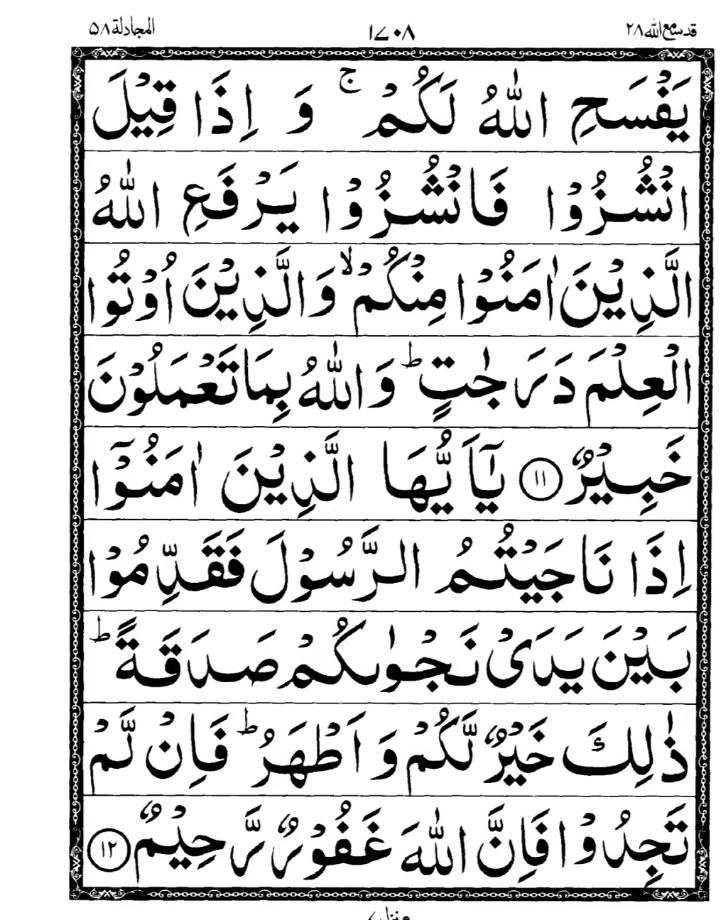 قد سمع الله ٢٨ ١٧٠٨ المجادلة ٥٨
يَفْسَحِ اللّٰهُ لَكُمْ ۚ وَ اِذَا قِيْلَ
انْشُزُوْا فَانْشُزُوْا يَرْفَعِ اللّٰهُ
الَّذِيْنَ اٰمَنُوْا مِنْكُمْ ۙ وَالَّذِيْنَ اُوْتُوا
الْعِلْمَ دَرَجٰتٍ ؕ وَاللّٰهُ بِمَا تَعْمَلُوْنَ
خَبِيْرٌ ۝۱۱ يٰۤاَيُّهَا الَّذِيْنَ اٰمَنُوْۤا
اِذَا نَاجَيْتُمُ الرَّسُوْلَ فَقَدِّمُوْا
بَيْنَ يَدَىْ نَجْوٰىكُمْ صَدَقَةً ؕ
ذٰلِكَ خَيْرٌ لَّكُمْ وَ اَطْهَرُ ؕ فَاِنْ لَّمْ
تَجِدُوْا فَاِنَّ اللّٰهَ غَفُوْرٌ رَّحِيْمٌ ۝۱۲
منزل ٧